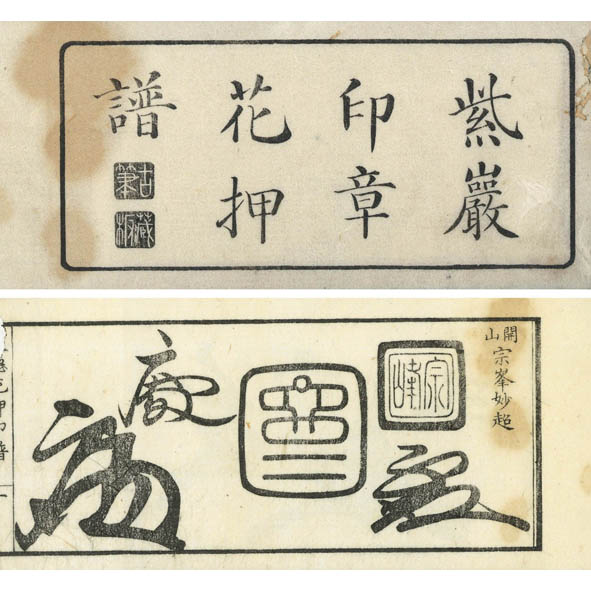 紫巖
印章
花押
譜
古筆
藏板
開山
宗峯妙超
宗峰
花押印譜 一